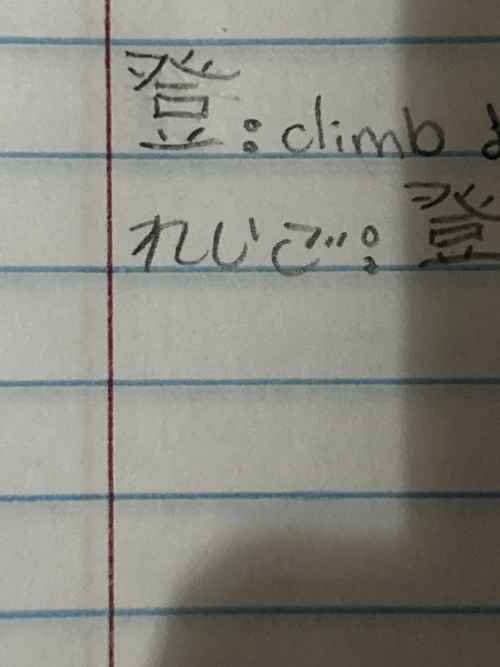 登：climb
れじご：登